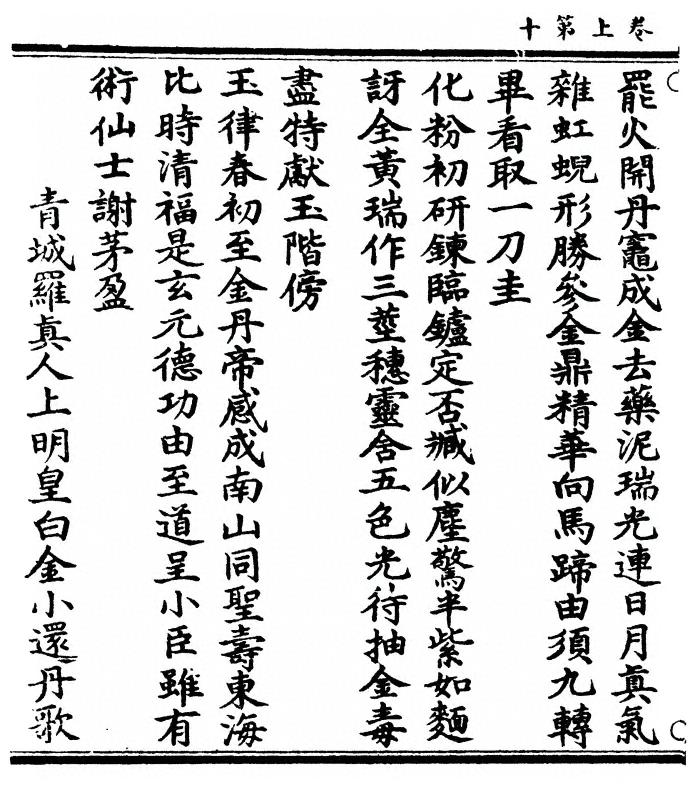 卷上第十
罷火開丹竈成金去藥泥瑞光連日月真氣
雜虹蜺形勝參金鼎精華向馬蹄由須九轉
畢看取一刀圭
化粉初研鍊臨鑪定否臧似塵驚半紫如麵
訝全黃瑞作三莖穗靈含五色光待抽金毒
盡特獻玉階傍
玉律春初至金丹帝感成南山同聖壽東海
比時清福是玄元德功由至道呈小臣雖有
術仙士謝茅盈
青城羅真人上明皇白金小還丹歌